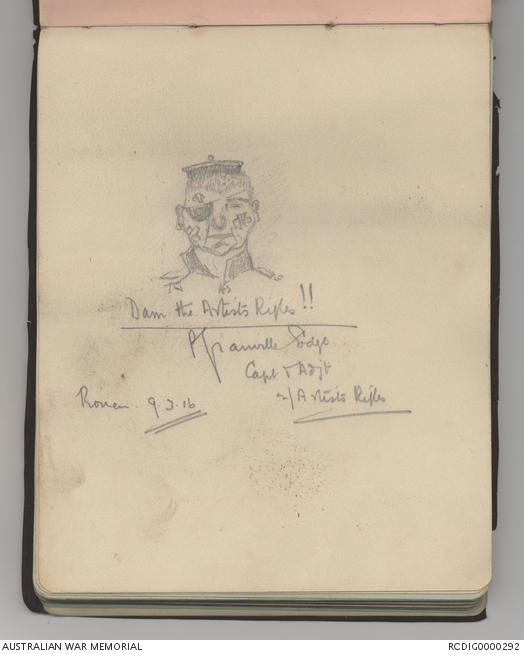 Dam the Artists Rifles!!
P Granville Edge
Capt & Adjt
2/Artists Rifles
Rouen. 9.3.16
AUSTRALIAN WAR MEMORIAL
RCDIG0000292